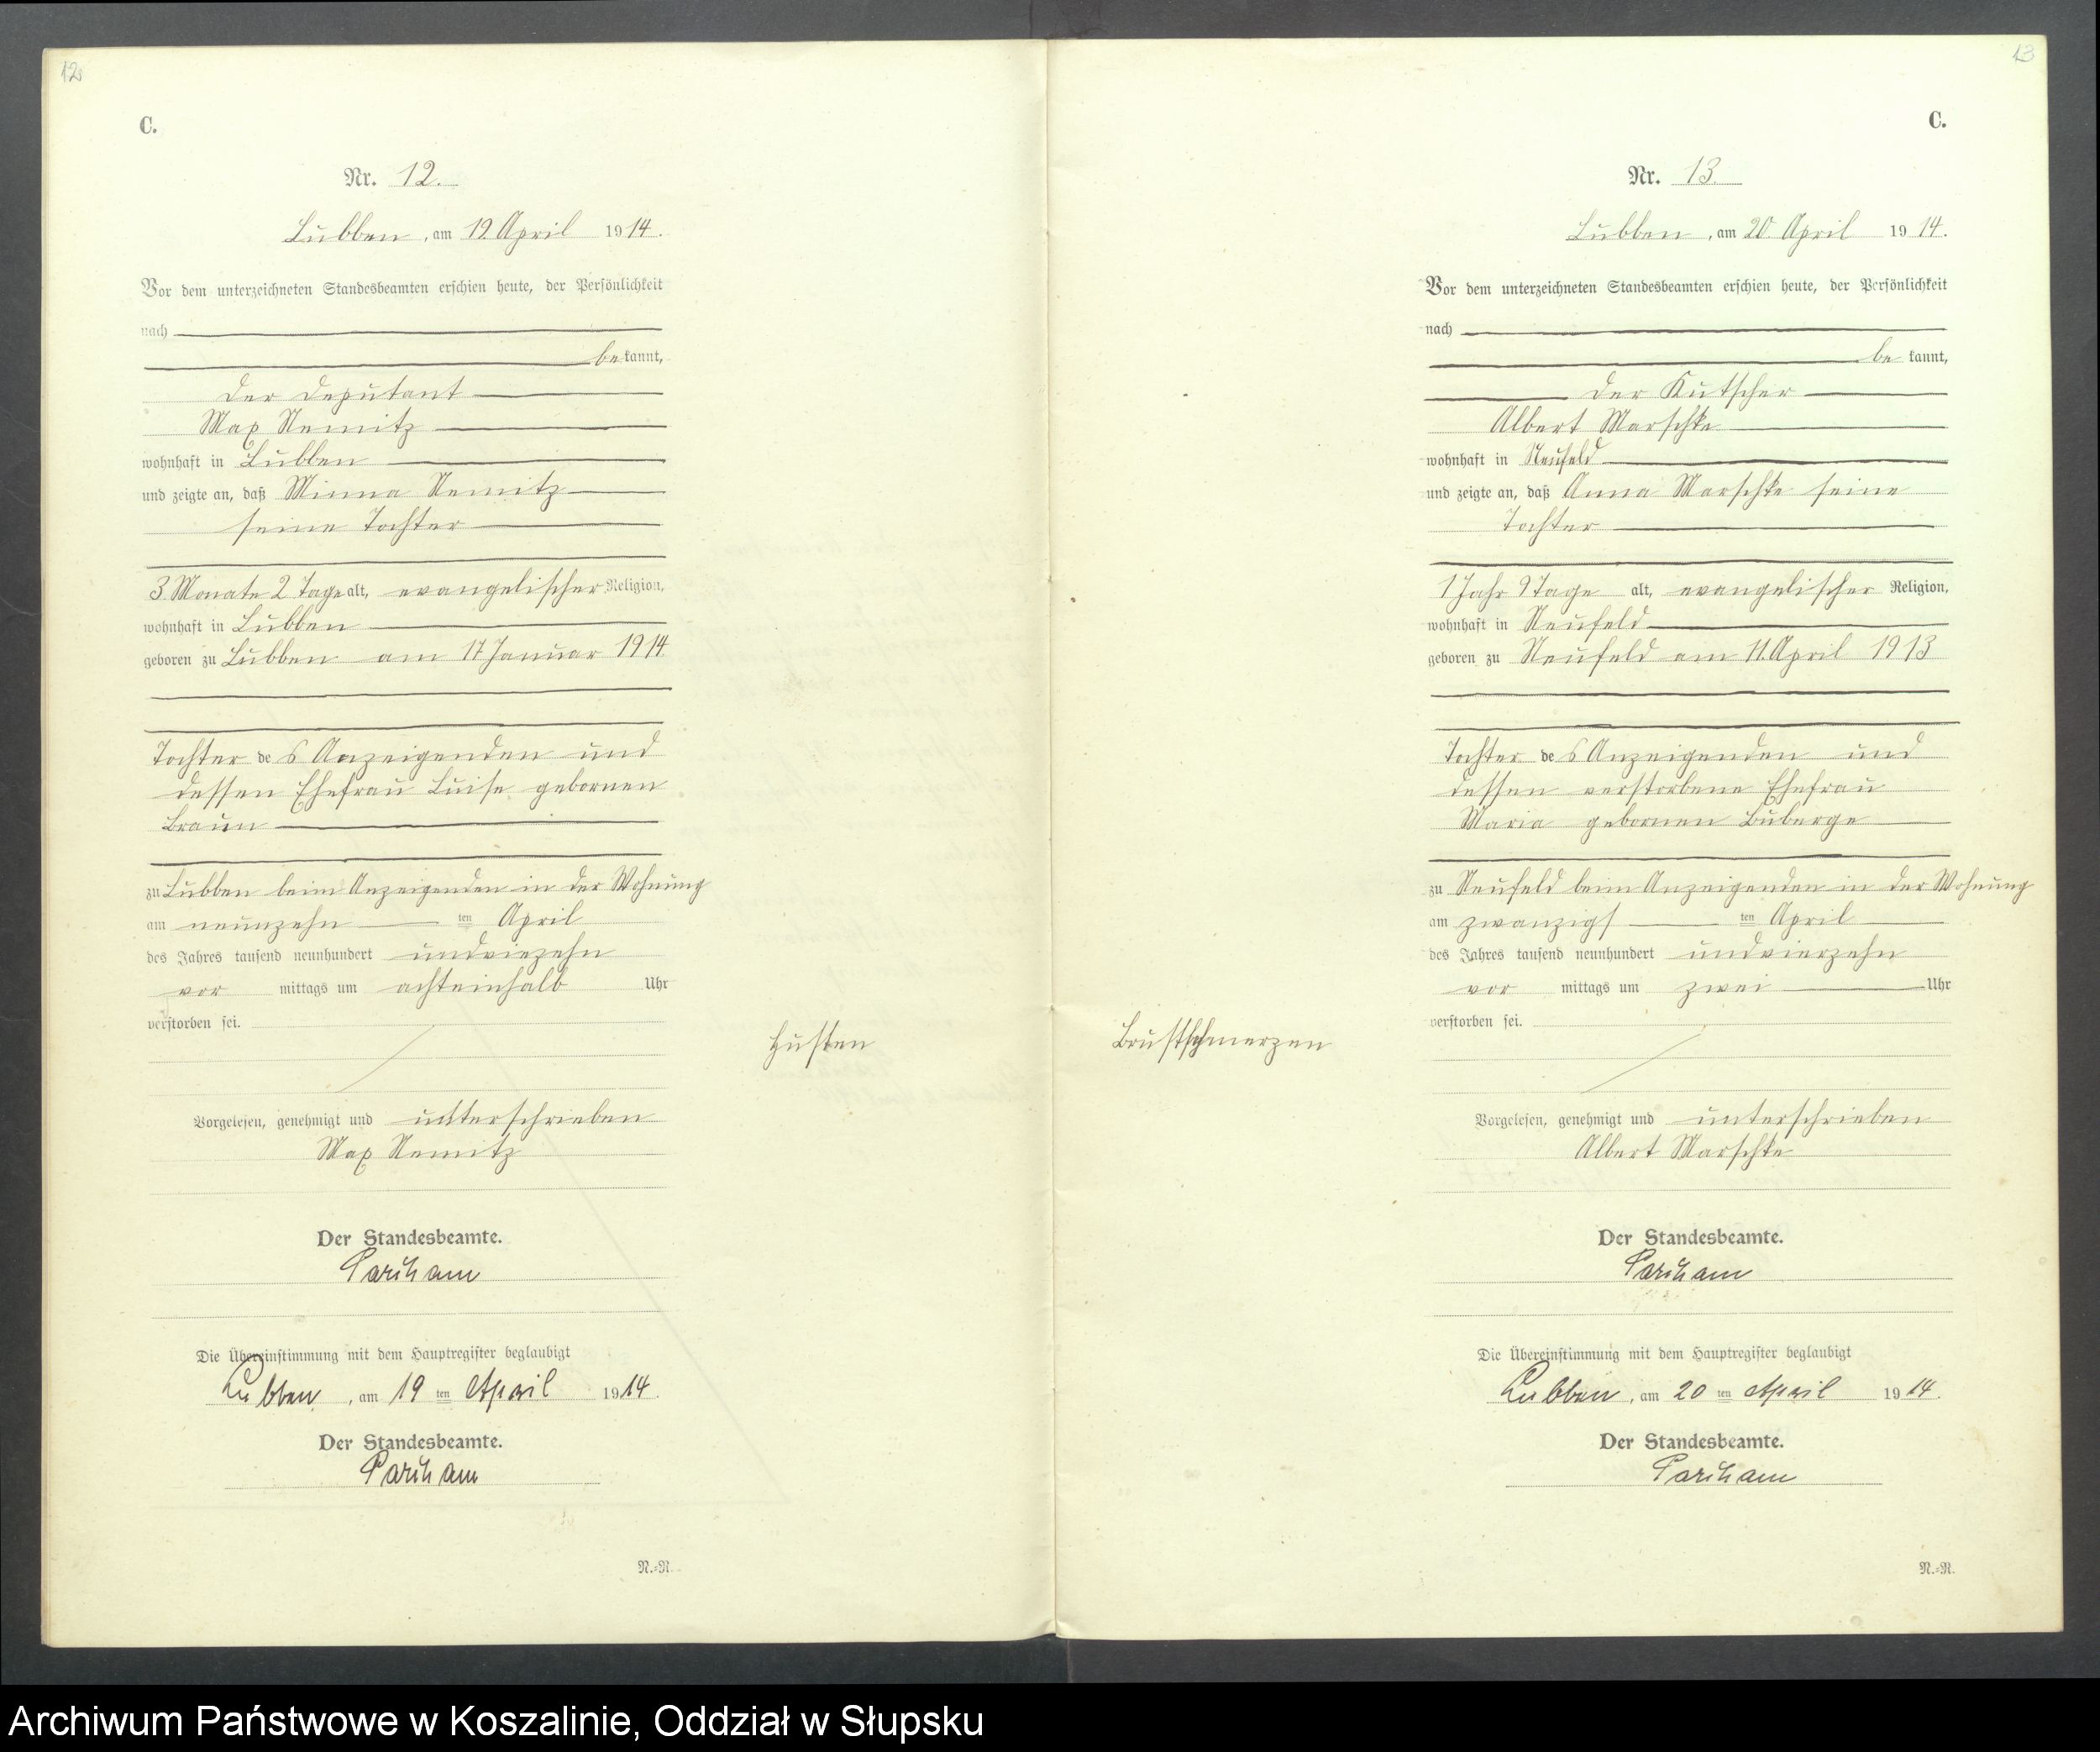 12
C.
Nr. 12.
Lubben, am 19. April 1914.
Vor dem unterzeichneten Standesbeamten erschien heute, der Persönlichkeit
nach
bekannt,
der Deputant
Max Nemitz
wohnhaft in Lubben
und zeigte an, daß Minna Nemitz
seine Tochter
3 Monate 2 Tage alt, evangelischer Religion,
wohnhaft in Lubben
geboren zu Lubben am 17 Januar 1914
Tochter des Anzeigenden und
dessen Ehefrau Luise gebornen
Braun
zu Lubben beim Anzeigenden in der Wohnung
am neunzehn ten April
des Jahres tausend neunhundert undviezehn
vor mittags um achteinhalb Uhr
verstorben sei.
Husten
Vorgelesen, genehmigt und unterschrieben
Max Nemitz
Der Standesbeamte.
Die Übereinstimmung mit dem Hauptregister beglaubigt
Lubben, am 19 ten April 1914.
Der Standesbeamte.
N.=N.
13
C.
Nr. 13.
Lubben, am 20. April 1914.
Vor dem unterzeichneten Standesbeamten erschien heute, der Persönlichkeit
nach
bekannt,
der Kutscher
Albert Marschke
wohnhaft in Neufeld
und zeigte an, daß Anna Marschke seine
Tochter
1 Jahr 9 Tage alt, evangelischer Religion,
wohnhaft in Neufeld
geboren zu Neufeld am 11. April 1913
Tochter des Anzeigenden und
dessen verstorbene Ehefrau
Maria gebornen Buberge
zu Neufeld beim Anzeigenden in der Wohnung
am zwanzigs ten April
des Jahres tausend neunhundert undvierzehn
vor mittags um zwei Uhr
verstorben sei.
Brustschmerzen
Vorgelesen, genehmigt und unterschrieben
Albert Marschke
Der Standesbeamte.
Die Übereinstimmung mit dem Hauptregister beglaubigt
Lubben, am 20 ten April 1914.
Der Standesbeamte.
N.=N.
Archiwum Państwowe w Koszalinie, Oddział w Słupsku